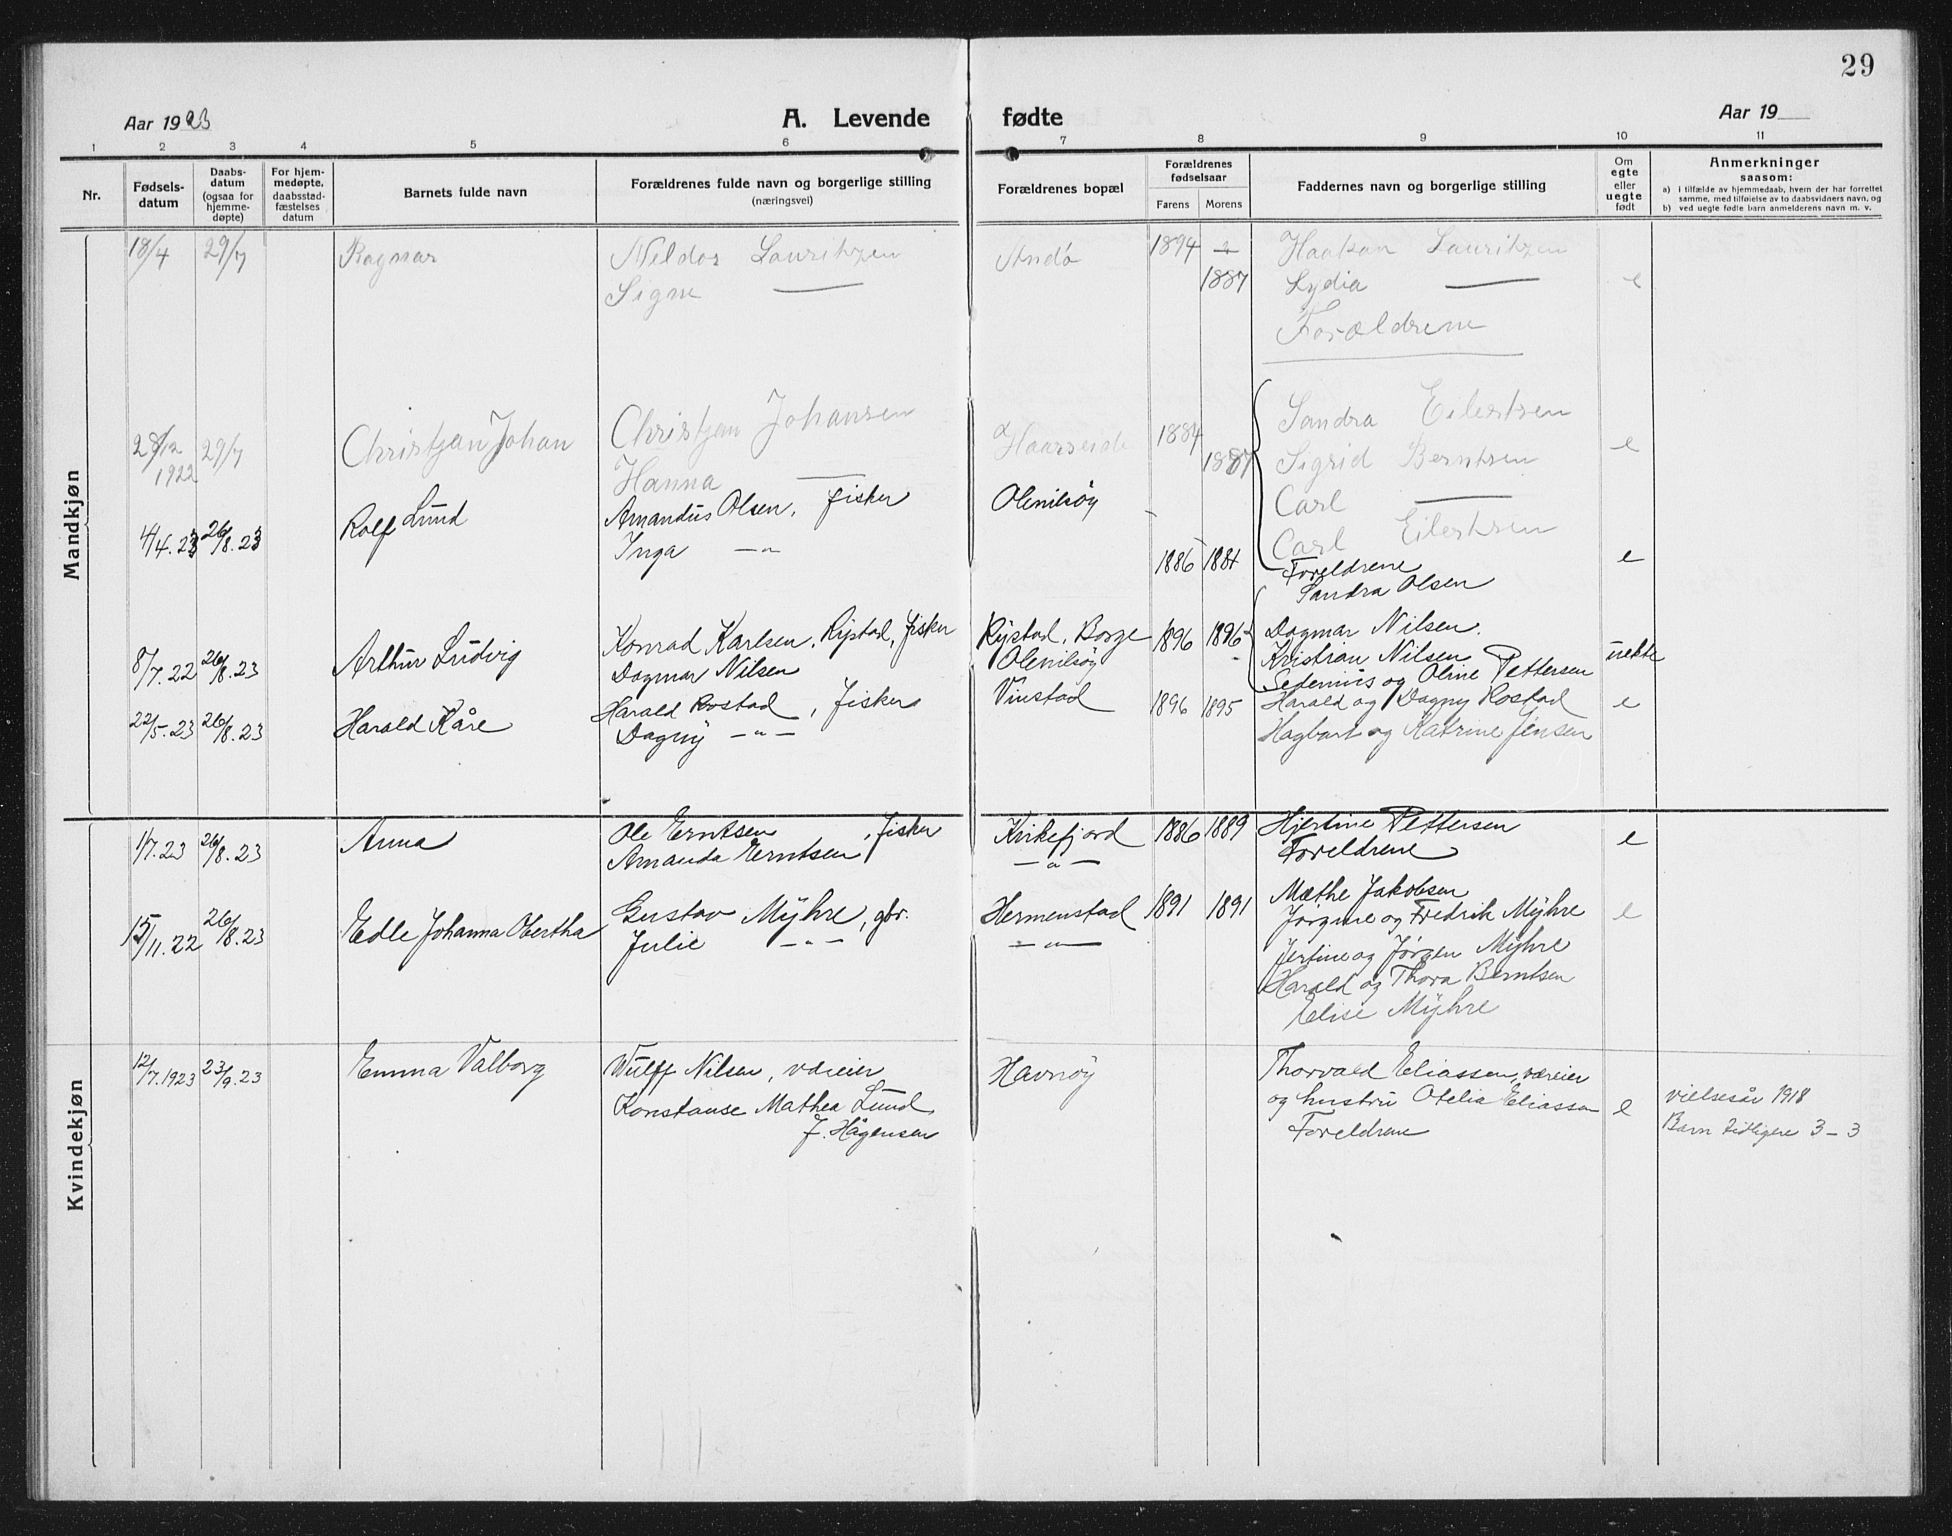 29
Aar 1923 A. Levende fødte Aar 19
1 2 3 4 5 6 7 8 9 10 11
Nr.
Fødsels-datum
Daabs-datum (ogsaa for hjemme-døpte)
For hjem-medøpte, daabsstad-fæstelses datum
Barnets fulde navn
Forældrenes fulde navn og borgerlige stilling
(næringsvei)
Forældrenes bopæl
Forældrenes fødselsaar
Farens Morens
Faddernes navn og borgerlige stilling
Om egte eller uegte født
Anmerkninger
saasom:
a) i tilfælde av hjemmedaab, hvem der har forrettet
samme, med tilføielse av to daabsvidners navn, og
b) ved uegte fødte barn anmelderens navn m. v.
Mandkjøn
18/4 29/7 Ragnar Neldor Lauritzen Andø 1894 Haakon Lauritzen
Signe — 1887 Lydia — e
Forældrene
29/7 Christjan Johan Christjan Johansen 1884 Sandra Eilertsen
1922 Hanna — 1887 Sigrid Berntsen e
Carl —
Carl Eilertsen
4/4.23 26/8.23 Rolf Lund Amandus Olsen, fisker Olenilsøy
Inga —"— 1886 1884 Foreldrene e
Sandra Olsen
8/7.22 26/8.23 Arthur Ludvig Konrad Karlsen, Rystad, fisker Rystad, Borge 1896 1896 Dagmar Nilsen.
Dagmar Nilsen Olenilsøy Kristian Nilsen uekte
Sedenius og Oline Pettersen
22/5.23 26/8.23 Harald Kåre Harald Rostad, fisker Vinstad 1896 1895 Harald og Dagny Rostad e
Dagny —"— Hagbart og Katrine Jensen
Kvindekjøn
1/7.23 26/8.23 Anna Ole Erntsen, fisker Kirkefjord 1886 1889 Hjertine Pettersen
Amanda Erntsen —"— Foreldrene e
15/11.22 26/8.23 Edle Johanna Hertha Gustav Myhre, gbr. Hermenstad 1891 1891 Mæthe Jakobsen
Julie —"— —"— Jørgine og Fredrik Myhre e
Jertine og Jørgen Myhre
Harald og Thora Berntsen
Elise Myhre
12/7.1923 23/9.23 Emma Valborg Wulff Nilsen, væreier Havnøy Thorvald Eliassen, væreier
Konstanse Mathea Lund og hustru Otelia Eliassen e vielsesår 1918
f. Hågensen Foreldrene Barn tidligere 3-3